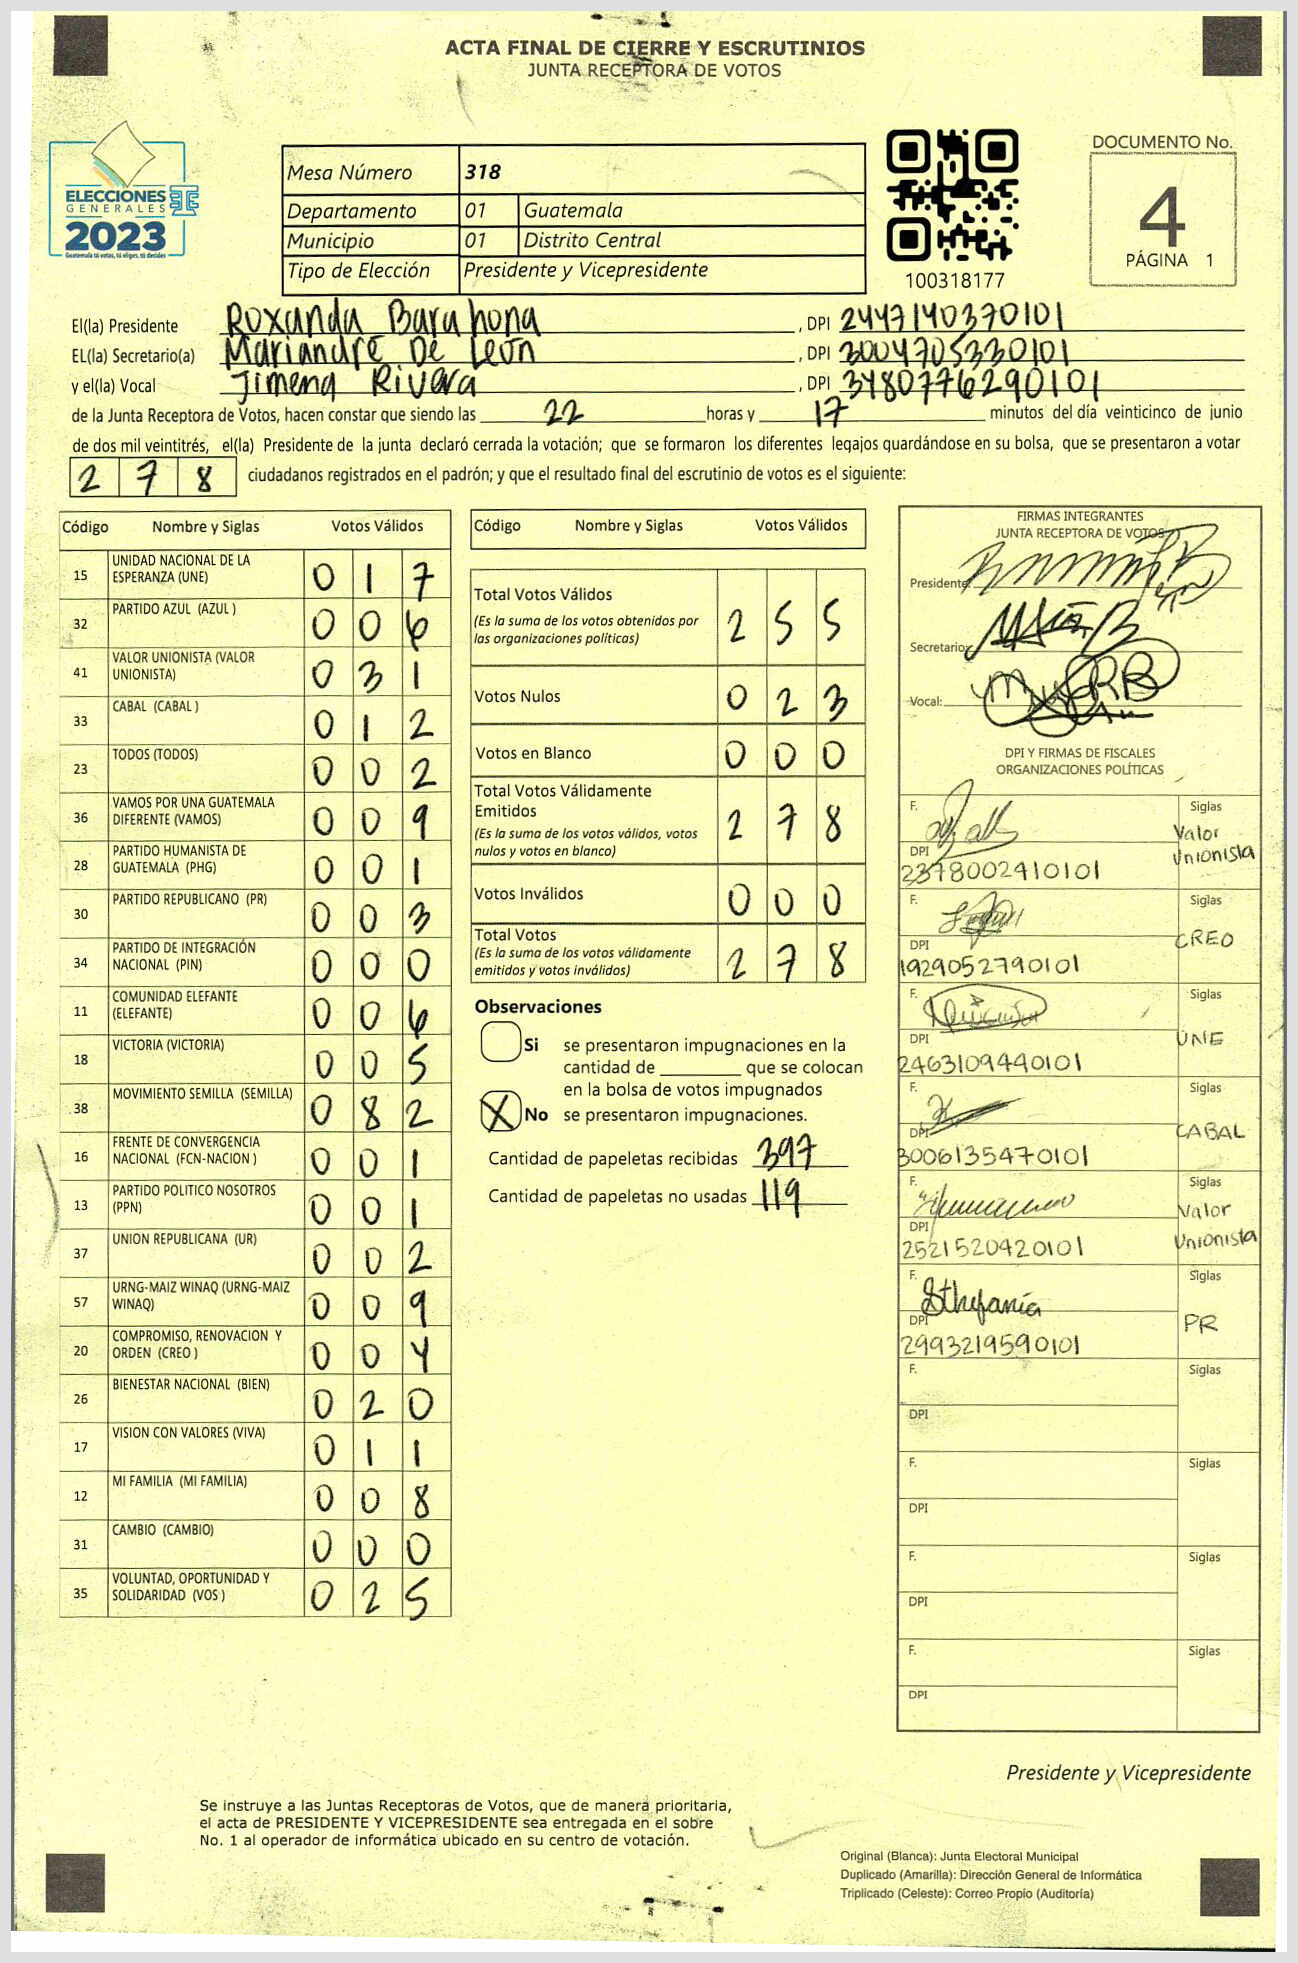 ACTA FINAL DE CIERRE Y ESCRUTINIOS
JUNTA RECEPTORA DE VOTOS
ELECCIONES
GENERALES
2023
Guatemala tú votas, tú eliges, tú decides
Mesa Número 318
Departamento 01 Guatemala
Municipio 01 Distrito Central
Tipo de Elección Presidente y Vicepresidente
100318177
DOCUMENTO No.
4
PÁGINA 1
El(la) Presidente Roxanda Barahona, DPI 2447140370101
EL(la) Secretario(a) Mariandré De León, DPI 3004705330101
y el(la) Vocal Jimena Rivera, DPI 3480776290101
de la Junta Receptora de Votos, hacen constar que siendo las 22 horas y 17 minutos del día veinticinco de junio
de dos mil veintitrés, el(la) Presidente de la junta declaró cerrada la votación; que se formaron los diferentes legajos guardándose en su bolsa, que se presentaron a votar
2 7 8 ciudadanos registrados en el padrón; y que el resultado final del escrutinio de votos es el siguiente:
Código Nombre y Siglas Votos Válidos
15 UNIDAD NACIONAL DE LA ESPERANZA (UNE) 0 1 7
32 PARTIDO AZUL (AZUL ) 0 0 6
41 VALOR UNIONISTA (VALOR UNIONISTA) 0 3 1
33 CABAL (CABAL ) 0 1 2
23 TODOS (TODOS) 0 0 2
36 VAMOS POR UNA GUATEMALA DIFERENTE (VAMOS) 0 0 9
28 PARTIDO HUMANISTA DE GUATEMALA (PHG) 0 0 1
30 PARTIDO REPUBLICANO (PR) 0 0 3
34 PARTIDO DE INTEGRACIÓN NACIONAL (PIN) 0 0 0
11 COMUNIDAD ELEFANTE (ELEFANTE) 0 0 6
18 VICTORIA (VICTORIA) 0 0 5
38 MOVIMIENTO SEMILLA (SEMILLA) 0 8 2
16 FRENTE DE CONVERGENCIA NACIONAL (FCN-NACION ) 0 0 1
13 PARTIDO POLITICO NOSOTROS (PPN) 0 0 1
37 UNION REPUBLICANA (UR) 0 0 2
57 URNG-MAIZ WINAQ (URNG-MAIZ WINAQ) 0 0 9
20 COMPROMISO, RENOVACION Y ORDEN (CREO ) 0 0 4
26 BIENESTAR NACIONAL (BIEN) 0 2 0
17 VISION CON VALORES (VIVA) 0 1 1
12 MI FAMILIA (MI FAMILIA) 0 0 8
31 CAMBIO (CAMBIO) 0 0 0
35 VOLUNTAD, OPORTUNIDAD Y SOLIDARIDAD (VOS ) 0 2 5
Código Nombre y Siglas Votos Válidos
Total Votos Válidos 2 5 5
(Es la suma de los votos obtenidos por
las organizaciones políticas)
Votos Nulos 0 2 3
Votos en Blanco 0 0 0
Total Votos Válidamente
Emitidos 2 7 8
(Es la suma de los votos válidos, votos
nulos y votos en blanco)
Votos Inválidos 0 0 0
Total Votos 2 7 8
(Es la suma de los votos válidamente
emitidos y votos inválidos)
Observaciones
Si se presentaron impugnaciones en la
cantidad de ________ que se colocan
en la bolsa de votos impugnados
X No se presentaron impugnaciones.
Cantidad de papeletas recibidas 397
Cantidad de papeletas no usadas 119
FIRMAS INTEGRANTES
JUNTA RECEPTORA DE VOTOS
Presidente:
Secretario:
Vocal:
DPI Y FIRMAS DE FISCALES
ORGANIZACIONES POLÍTICAS
F. Siglas
Valor Unionista
DPI
2378002410101
F. Siglas
CREO
DPI
1929052790101
F. Siglas
UNE
DPI
2463109440101
F. Siglas
CABAL
DPI
3006135470101
F. Siglas
Valor Unionista
DPI
2521520420101
F. Sthefania Siglas
PR
DPI
2993219590101
F. Siglas
DPI
F. Siglas
DPI
F. Siglas
DPI
F. Siglas
DPI
Presidente y Vicepresidente
Se instruye a las Juntas Receptoras de Votos, que de manera prioritaria,
el acta de PRESIDENTE Y VICEPRESIDENTE sea entregada en el sobre
No. 1 al operador de informática ubicado en su centro de votación.
Original (Blanca): Junta Electoral Municipal
Duplicado (Amarilla): Dirección General de Informática
Triplicado (Celeste): Correo Propio (Auditoría)